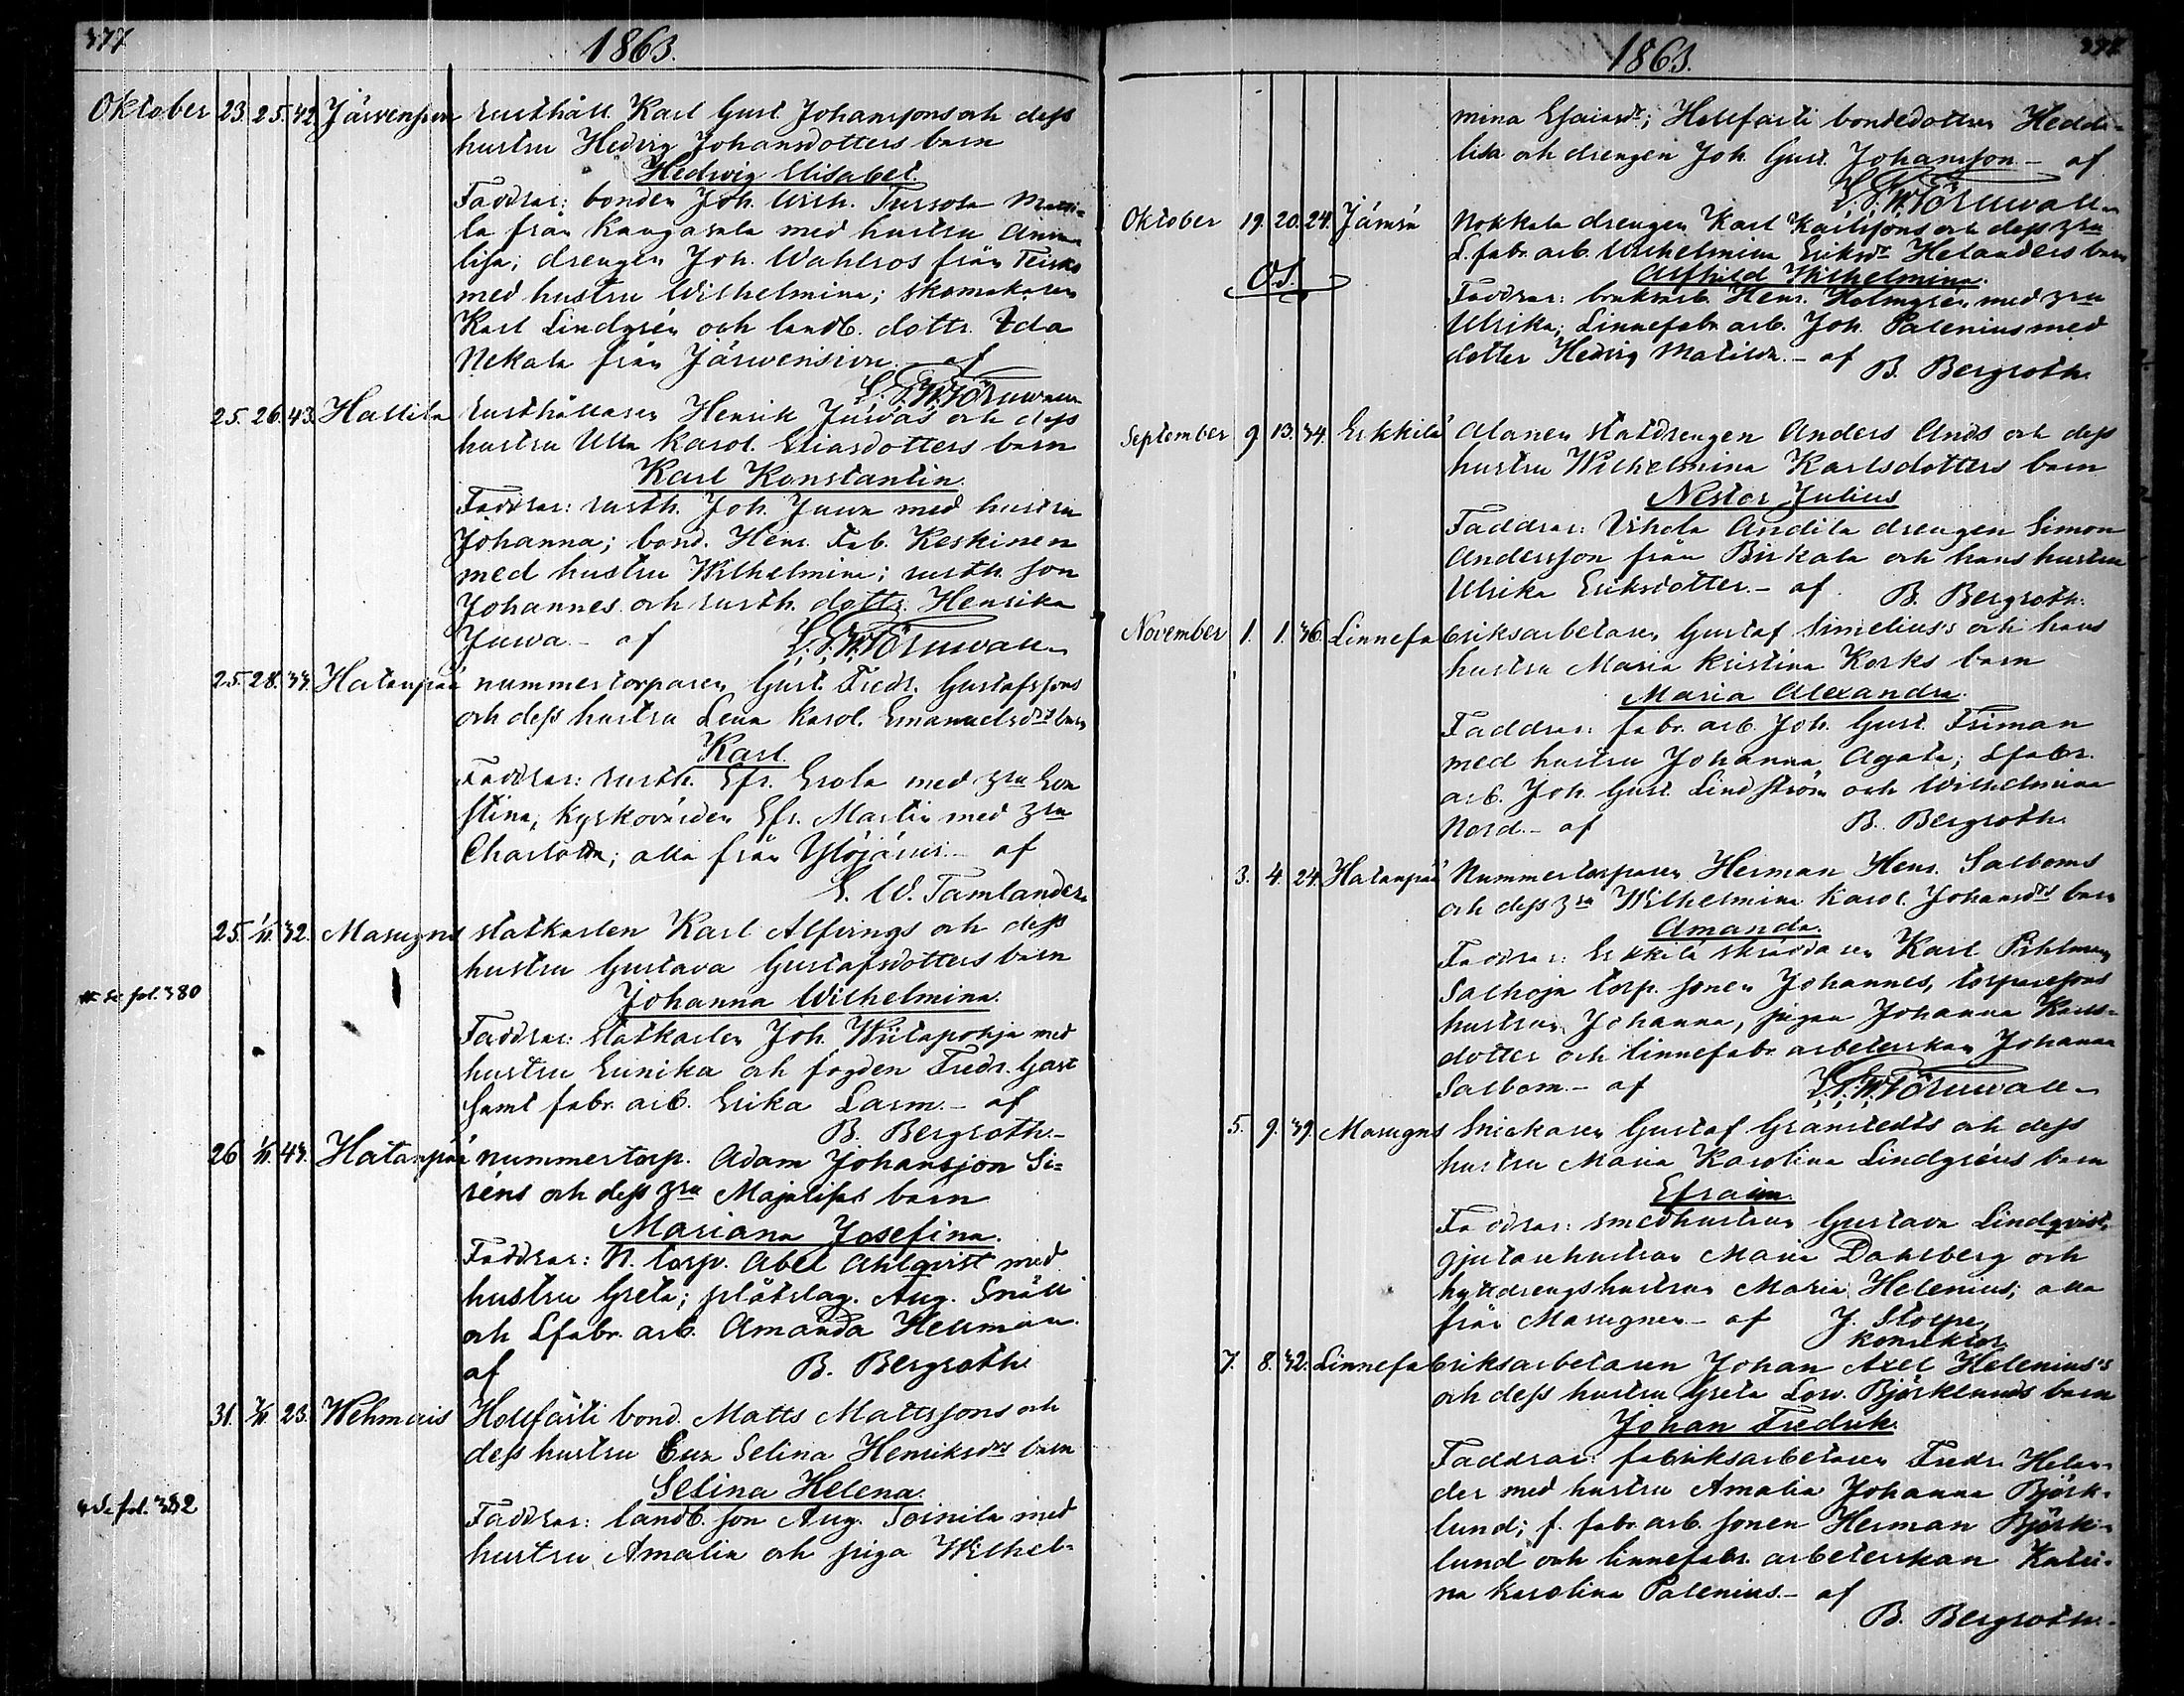 377
1863.
Oktober 23. 25. 42. Järvensivu rusthåll. Karl Gust. Johanssons och dess
hustru Hedvig Johansdotters barn
Hedwig Elisabet.
Faddrar: bonden Joh. Wilh. Tursola
la från Kangasala med hustru Anna
lisa; drengen Joh. Wahlros från Teisko
med hustru Wilhelmina; skomakaren
Karl Lindgrén och landb. dottr. Ida
Nekala från Järwensivu. - af
L. F. W. Törnwall
25. 26. 43. Hallila rusthållaren Henrik Juvas och dess
hustru Ulla Karol. Eliasdotters barn
Karl Konstantin.
Faddrar: rusth. Joh. Juva med hustru
Johanna; bond. Henr. Fab. Keskinen
med hustru Wilhelmina; rusth. son
Johannes och rusth. dottr. Henrika
Juwa. - af L. F. W. Törnwall.
25. 28. 33. Hatanpää nummertorparen Gust. Fredr. Gustafssons
och dess hustru Lena Karol. Emanuelsdrs barn
Karl.
Faddrar: rusth. Efr. Erola med hru Eva
stina, kyrkovärden Efr. Martin med hru
Charlotta; alla från Ylöjärvi. - af
E. W. Tamlander.
25. 1/11 32. Masugns statkarlen Karl Alfvings och dess
hustru Gustava Gustafsdotters barn
se fol. 380
Johanna Wilhelmina.
Faddrar: statkarlen Joh. Wiitapohja med
hustru Eunika och fogden Fredr. Gast
samt fabr. arb. Erika Larm. - af
B. Bergroth.-
26 1/11 43. Hatanpää nummertorp. Adam Johansson Si=
réns och dess hru Majalisas barn
Mariana Josefina.
Faddrar: N. torp. Abel Ahlqvist med
hustru Greta; plåtslag. Aug. Snäll
och Lfabr. arb. Amanda Heuman.
af B. Bergroth.
31. 23. Wehmais Hollfasti bond. Matts Mattssons och
dess hustru Eva Selina Henriksdrs barn
Selina Helena.
se fol. 382
Faddrar: landb. son Aug. Toinila med
hustru Amalia och piga Wilhel-
378
1863.
mina Esaiasdr; Hollfasti bondedotter Hedda=
lisa och drengen Joh. Gust. Johansson. - af
L. F. W. Törnwall.
Oktober 19. 20. 24. Jämsä Nokkala drengen Karl Karlssons och dess hru
L. fabr. arb. Wilhelmina Eriksdr Helanders barn
Alfhild Wilhelmina.
Faddrar: bruksarb. Henr. Holmgrén med hru
Ulrika; Linnefabr. arb. Joh. Palenius med
dotter Hedvig Matilda. - af B. Bergroth.
September 9. 13. 34. Erkkilä Alanen statdrengen Anders Ands och dess
hustru Wilhelmina Karlsdotters barn
Nestor Julius
Faddrar: Uhola Andila drengen Simon
Andersson från Birkala och hans hustru
Ulrika Eriksdotter. - af B. Bergroth.
November 1. 1. 36. Linnefabriksarbetaren Gustaf Simelius's och hans
hustru Maria Kristina Korks barn
Maria Alexandra.
Faddrar: fabr. arb. Joh. Gust. Friman
med hustru Johanna Agata; Lfabr.
arb. Joh. Gust. Lindström och Wilhelmina
Nord. - af B. Bergroth.
3. 4. 24. Hatanpää Nummertorparen Herman Henr. Salboms
och dess hru Wilhelmina Karol. Johansdrs barn
Amanda.
Faddrar: Erkkilä skräddaren Karl Pihlman
Salhoja torp. sonen Johannes, torparesons
hustrun Johanna, pigan Johanna Karls-
dotter och linnefabr. arbeterskan Johanna
Salbom. - af L. F. W. Törnwall.
5. 9. 39. Masugns Snickaren Gustaf Granstedts och dess
hustru Maria Karolina Lindgréns barn
Efraim.
Faddrar: smedhustrun Gustava Lindqvist,
gjutarehustrun Maria Dahlberg och
hyttdrengshustrun Maria Helenius; alla
från Masugnen. - af J. Storpe,
Konrektor.
7. 8. 32. Linnefabriksarbetaren Johan Axel Helenius's
och dess hustru Greta Lov. Björklunds barn
Johan Fredrik.
Faddrar: fabriksarbetaren Fredr. Helan-
der med hustru Amalia Johanna Björk-
lund; f. fabr. arb. sonen Herman Björk-
lund och linnefabr. arbeterskan Katri-
na Karolina Palenius. - af
B. Bergroth.-